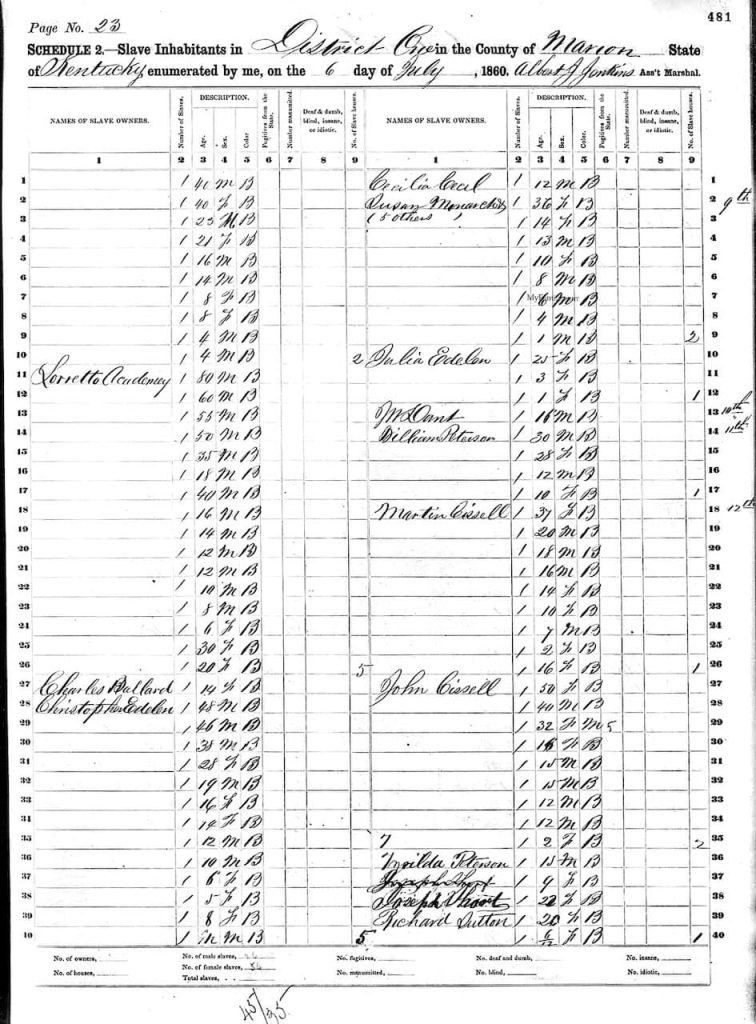 481
Page No. 23
SCHEDULE 2.—Slave Inhabitants in District One in the County of Marion State
of Kentucky enumerated by me, on the 6 day of July, 1860. Albert J Jenkins Ass't Marshal.
NAMES OF SLAVE OWNERS. Number of Slaves. DESCRIPTION. Age. Sex. Color Fugitives from the State. Number manumitted. Deaf & dumb, blind, insane, or idiotic. No. of Slave houses. NAMES OF SLAVE OWNERS. Number of Slaves. DESCRIPTION. Age. Sex. Color. Fugitives from the State. Number manumitted. Deaf & dumb, blind, insane, or idiotic. No. of Slave houses.
1 2 3 4 5 6 7 8 9 1 2 3 4 5 6 7 8 9
1 1 M B Cecilia Cecil 1 12 M B 1
2 1 40 F B Susan 1 36 F B 2 9th
3 1 23 M B (5 others) 1 14 F B 3
4 1 21 F B 1 13 M B 4
5 1 16 M B 1 10 F B 5
6 1 14 M B 1 8 M B 6
7 1 8 F B 1 6 M B 7
8 1 8 F B 1 4 M B 8
9 1 4 M B 1 1 M B 2 9
10 1 4 M B 2 Julia Edelen 1 25 F B 10
11 Lorretto Academey 1 80 M B 1 3 F B 11
12 1 60 M B 1 1 F B 1 12
13 1 55 M B 1 16 M B 13 10th
14 1 50 M B William Peterson 1 30 M B 14 11th
15 1 35 M B 1 28 F B 15
16 1 18 M B 1 12 M B 16
17 1 40 M B 1 10 F B 1 17
18 1 16 M B Martin Cissell 1 37 F B 18 12th
19 1 14 M B 1 20 M B 19
20 1 12 M B 1 18 M B 20
21 1 12 M B 1 16 M B 21
22 1 10 M B 1 14 F B 22
23 1 8 M B 1 10 F B 23
24 1 6 F B 1 7 M B 24
25 1 30 F B 1 2 F B 25
26 1 20 F B 5 1 16 F B 1 26
27 Charles Ballard 1 14 F B John Cissell 1 50 F B 27
28 Christopher Edelen 1 48 M B 1 40 M B 28
29 1 46 M B 1 32 F M 29
30 1 38 M B 1 F B 30
31 1 28 F B 1 15 M B 31
32 1 19 M B 1 15 M B 32
33 1 16 F B 1 12 M B 33
34 1 14 F B 1 12 M B 34
35 1 12 M B 7 1 2 F B 2 35
36 1 10 M B Peterson 1 15 M B 36
37 1 6 F B 1 9 F B 37
38 1 5 F B Joseph 1 F B 38
39 1 8 F B Richard Sutton 1 20 F B 39
40 1 M B 5 1 6/12 F B 1 40
No. of owners, No. of male slaves, No. fugitives, No. of deaf and dumb, No. of insane,
No. of houses, No. of female slaves, No. manumitted, No. of blind, No. of idiotic,
Total slaves,
45/35